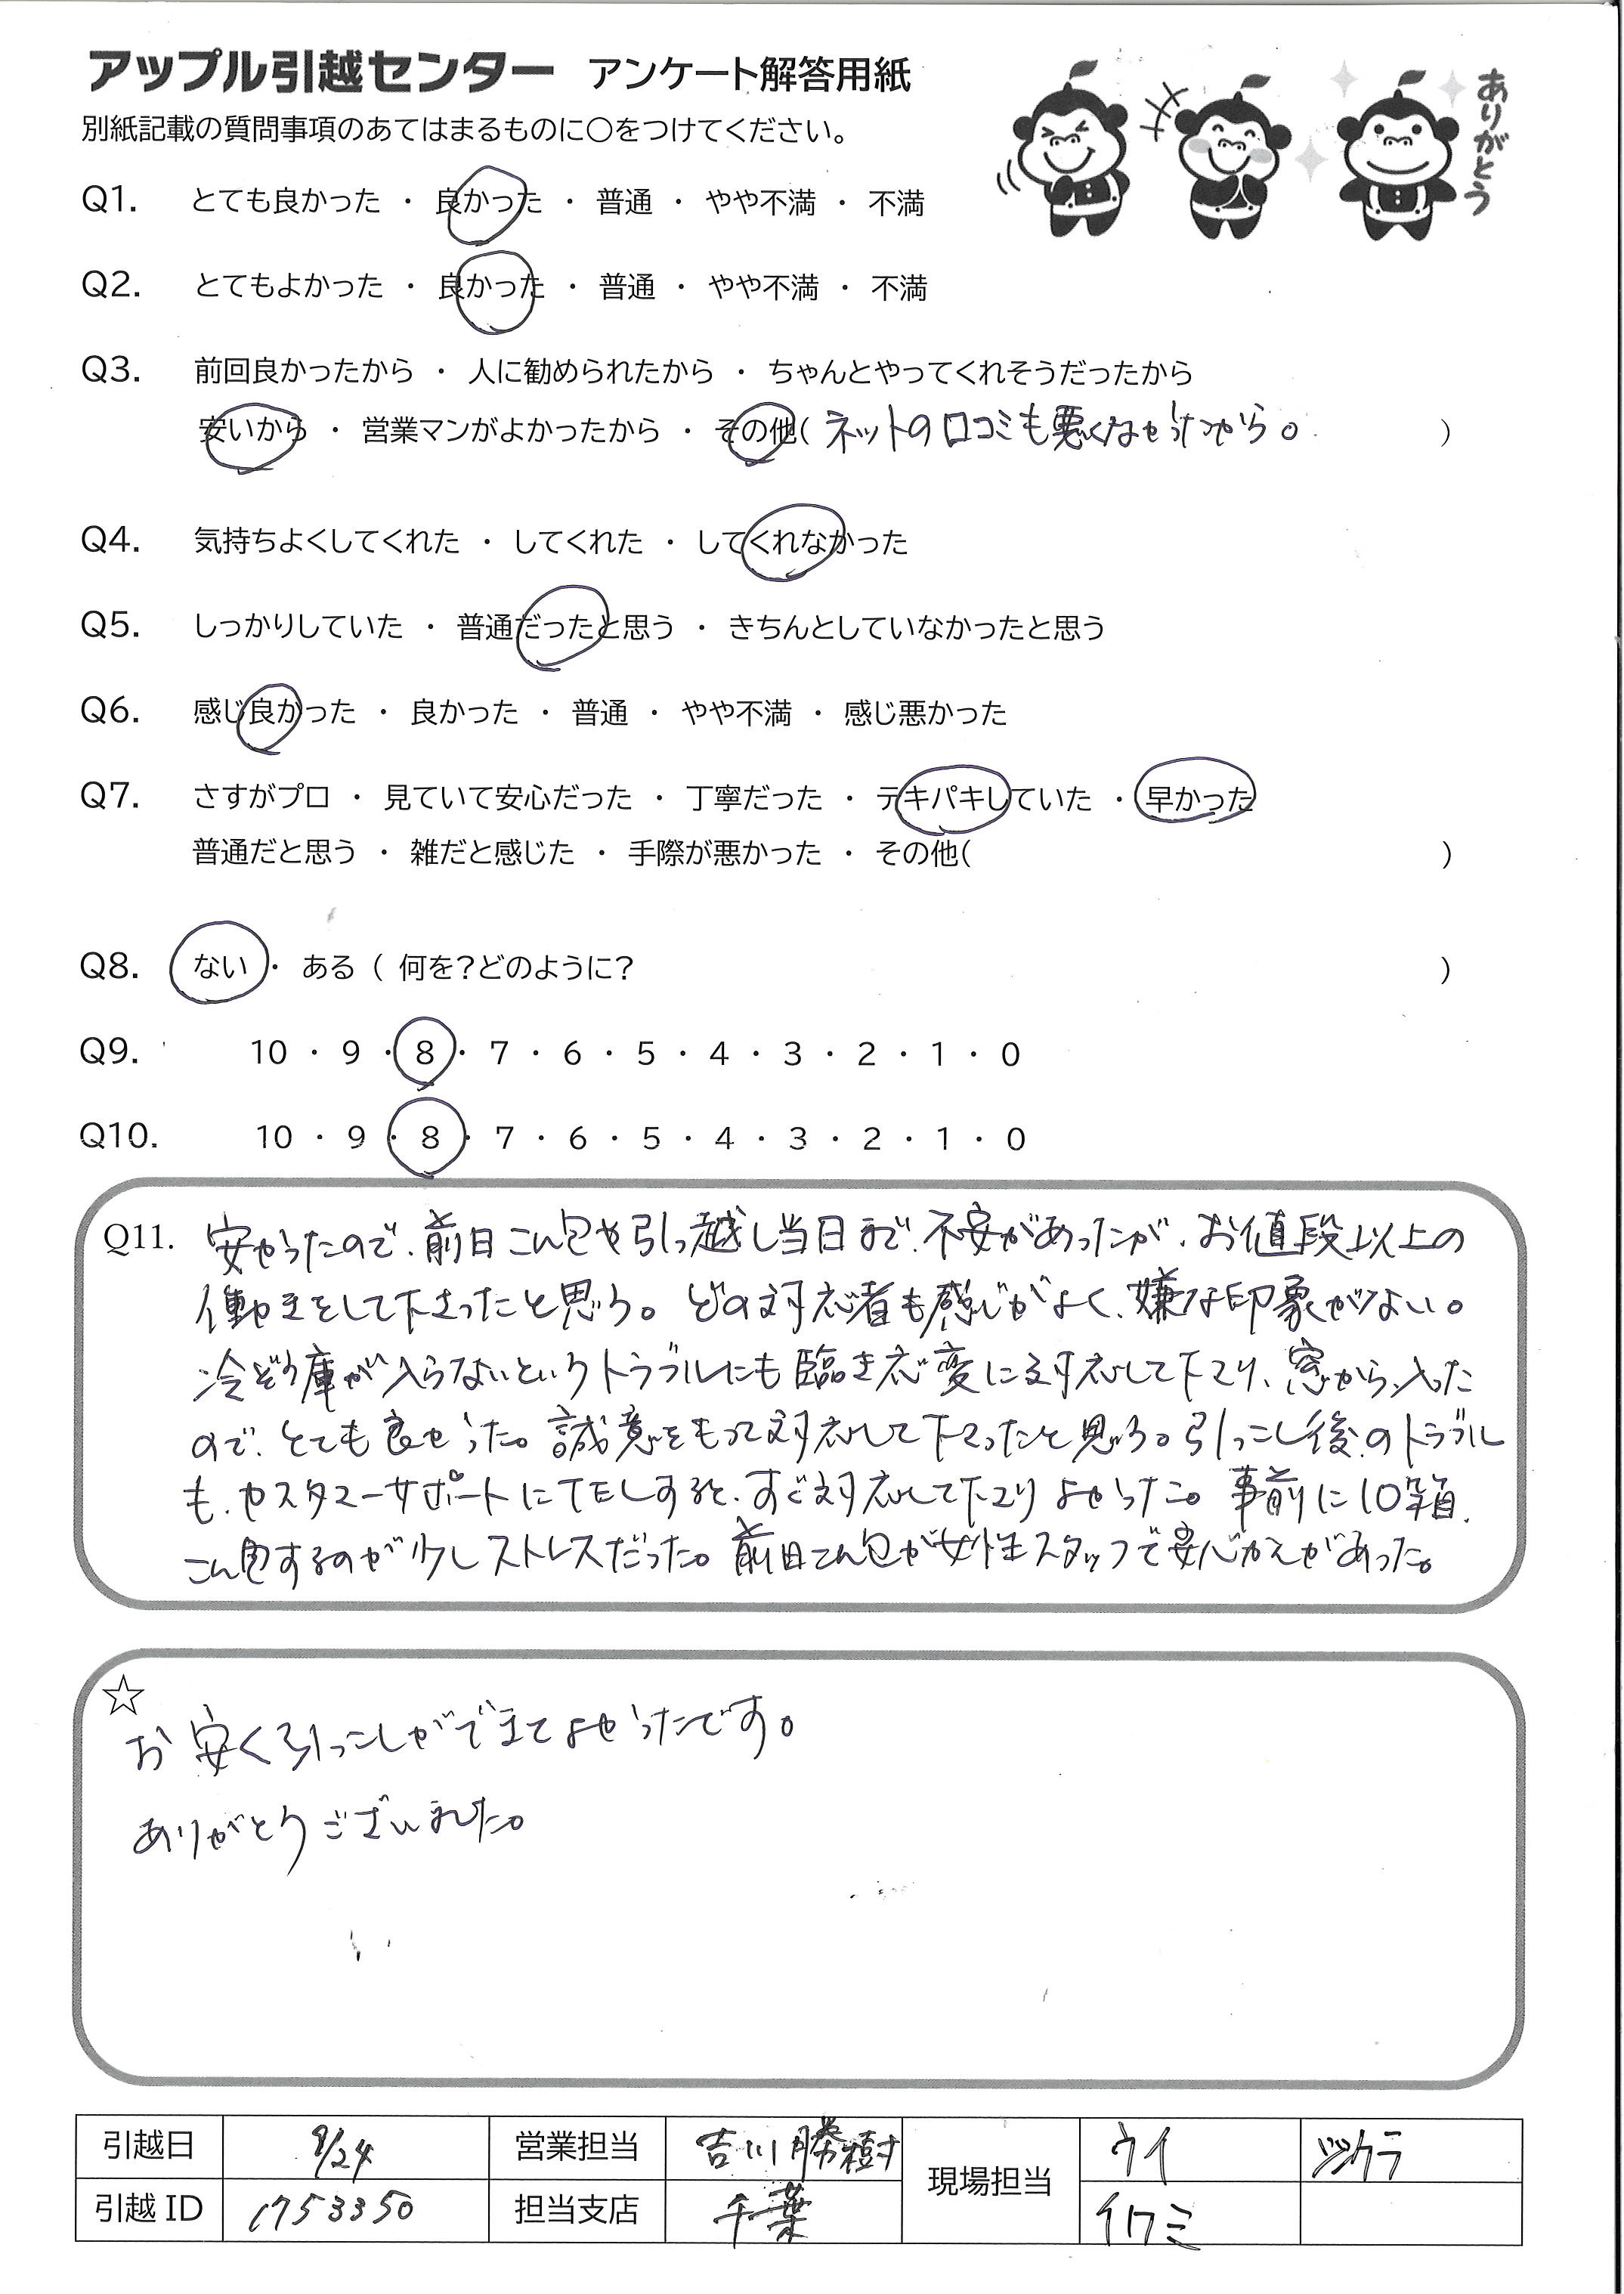 アップル引越センター アンケート解答用紙
ありがとう
別紙記載の質問事項のあてはまるものに○をつけてください。
Q1. とても良かった ・ 良かった ・ 普通 ・ やや不満 ・ 不満
Q2. とてもよかった ・ 良かった ・ 普通 ・ やや不満 ・ 不満
Q3. 前回良かったから ・ 人に勧められたから ・ ちゃんとやってくれそうだったから
安いから ・ 営業マンがよかったから ・ その他( ネットの口コミも悪くなかったから。 )
Q4. 気持ちよくしてくれた ・ してくれた ・ してくれなかった
Q5. しっかりしていた ・ 普通だったと思う ・ きちんとしていなかったと思う
Q6. 感じ良かった ・ 良かった ・ 普通 ・ やや不満 ・ 感じ悪かった
Q7. さすがプロ ・ 見ていて安心だった ・ 丁寧だった ・ テキパキしていた ・ 早かった
普通だと思う ・ 雑だと感じた ・ 手際が悪かった ・ その他( )
Q8. ない ・ ある ( 何を?どのように? )
Q9. 10 ・ 9 ・ 8 ・ 7 ・ 6 ・ 5 ・ 4 ・ 3 ・ 2 ・ 1 ・ 0
Q10. 10 ・ 9 ・ 8 ・ 7 ・ 6 ・ 5 ・ 4 ・ 3 ・ 2 ・ 1 ・ 0
Q11. 安かったので、前日こん包や引っ越し当日まで、不安があったが、お値段以上の
働きをして下さったと思う。どの対応者も感じがよく、嫌な印象がない。
冷ぞう庫が入らないというトラブルにも臨き応変に対応して下さり、窓から入った
ので、とても良かった。誠意をもって対応して下さったと思う。引っこし後のトラブル
も、カスタマーサポートにTELすると、すぐ対応して下さりよかった。事前に10箱
こん包するのが少しストレスだった。前日こん包が女性スタッフで安心かんがあった。
☆
お安く引っこしができてよかったです。
ありがとうございました。
引越日 9/24 営業担当 吉川勝樹 現場担当 ウイ ツクラ
引越ID 1753350 担当支店 千葉 イワミ